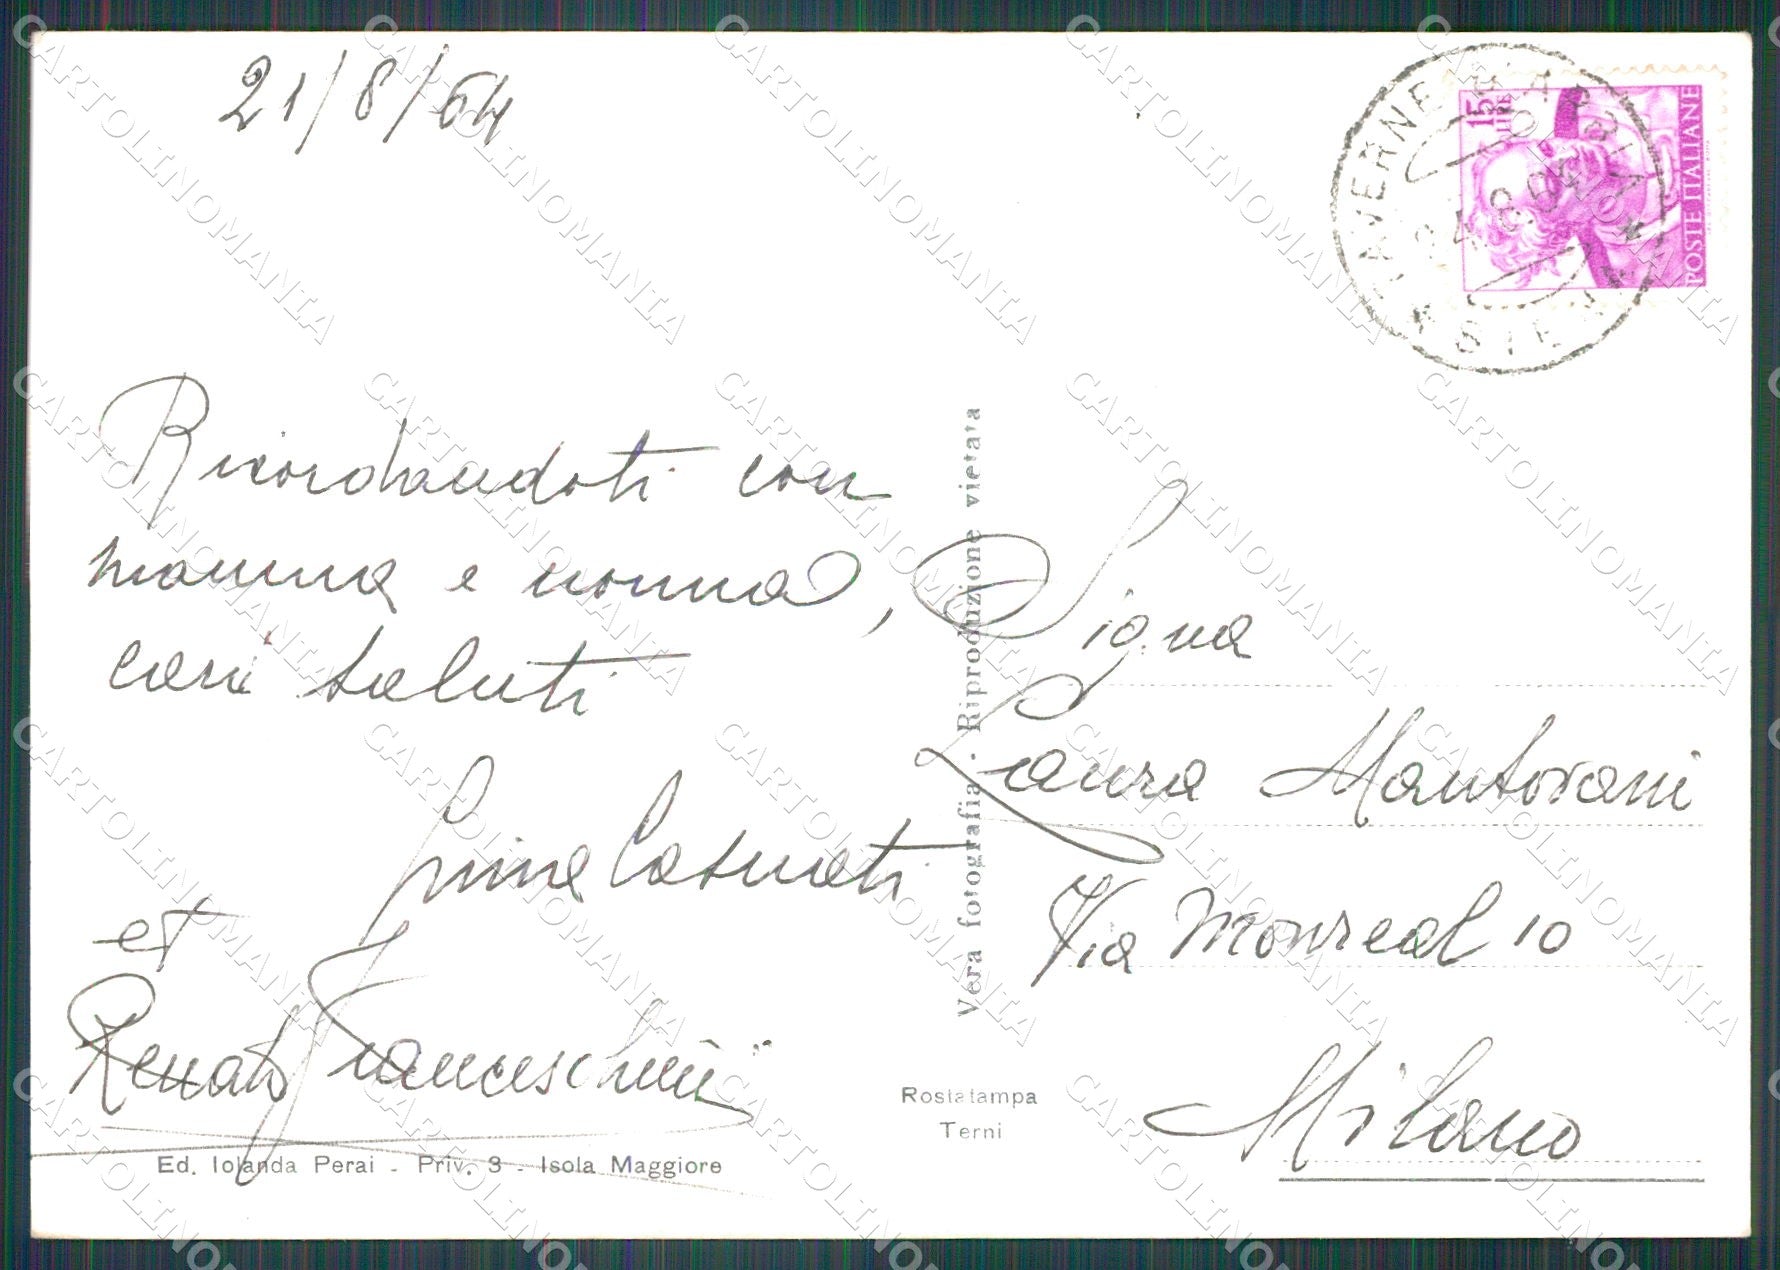 21/8/64
Ricordandoti con
mamma e nonna,
cari saluti
Casnati
et
Renato Franceschini
Ed. Iolanda Perai - Priv. 3 - Isola Maggiore
Vera fotografia - Riproduzione vietata
Rostatampa
Terni
15 LIRE
POSTE ITALIANE
TAVERNE D'ARBIA
* SIENA *
Sig.na
Laura Mantovani
Via Monreal 10
Milano
CARTOLINOMANIA